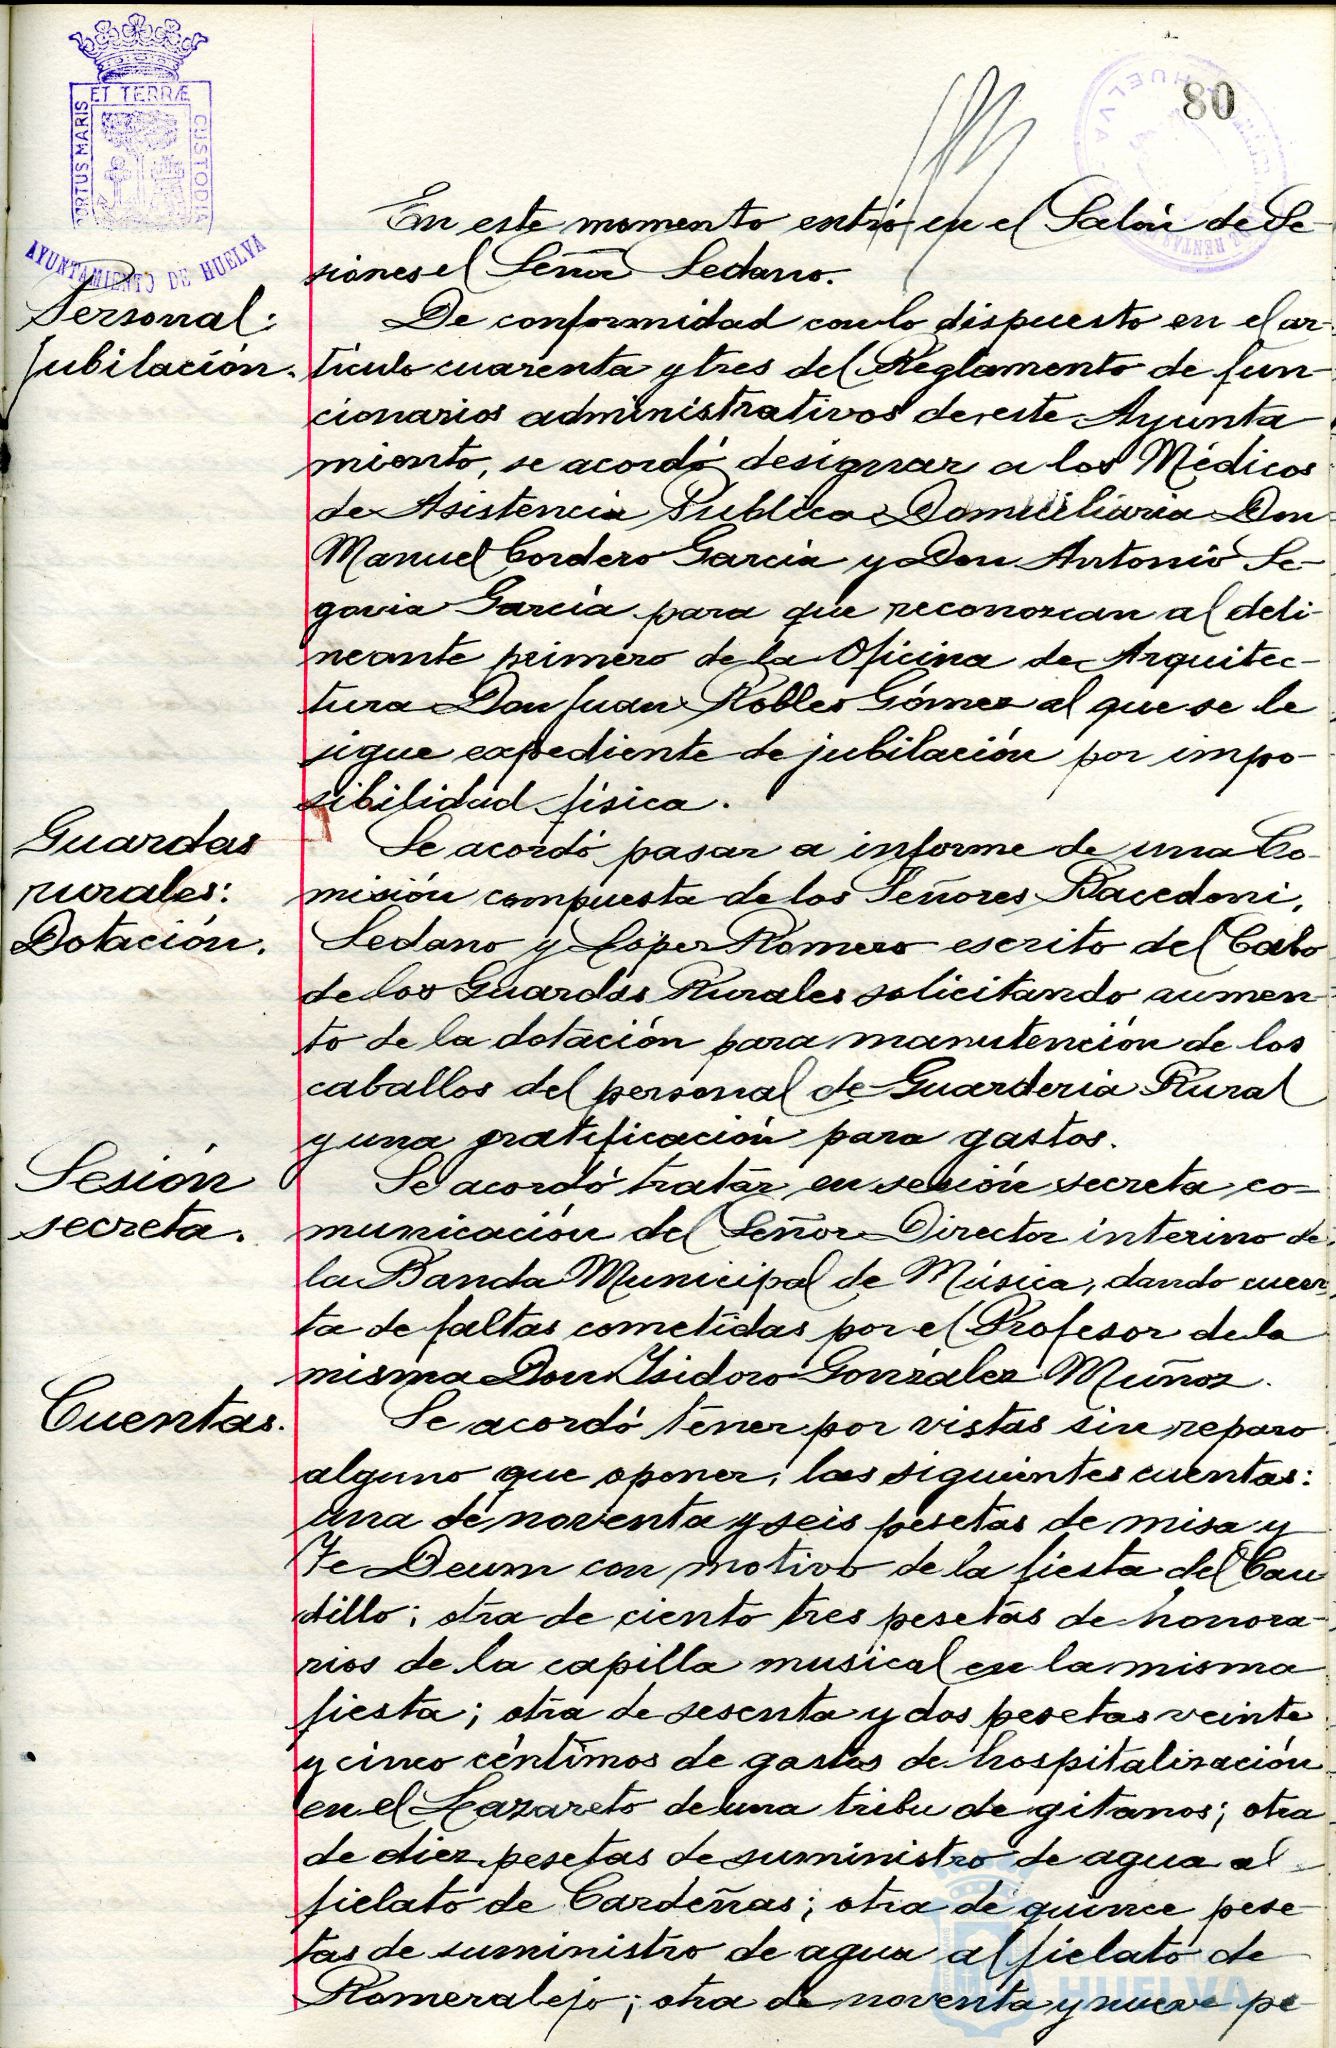 80
PORTUS MARIS ET TERRÆ CUSTODIA
AYUNTAMIENTO DE HUELVA
En este momento entró en el Salón de Se-
siones el Señor Sedano.
Personal:
Jubilación.
De conformidad con lo dispuesto en el ar-
tículo cuarenta y tres del Reglamento de fun-
cionarios administrativos de este Ayunta-
miento, se acordó designar a los Médicos
de Asistencia Publica Domiciliaria Don
Manuel Cordero García y Don Antonio Se-
govia García para que reconozcan al deli-
neante primero de la Oficina de Arquitec-
tura Don Juan Robles Gómez al que se le
sigue expediente de jubilación por impo-
sibilidad física.
Guardas
rurales:
Dotación.
Se acordó pasar a informe de una Co-
misión compuesta de los Señores Bacedoni,
Sedano y López Romero escrito del Cabo
de los Guardas Rurales solicitando aumen-
to de la dotación para manutención de los
caballos del personal de Guarderia Rural
y una gratificación para gastos.
Sesión
secreta.
Se acordó tratar en sesión secreta co-
municación del Señor Director interino de
la Banda Municipal de Música, dando cuen-
ta de faltas cometidas por el Profesor de la
misma Don Isidoro González Muñoz.
Cuentas.
Se acordó tener por vistas sin reparo
alguno que oponer, las siguientes cuentas:
una de noventa y seis pesetas de misa y
Te Deum con motivo de la fiesta del Cau
dillo; otra de ciento tres pesetas de honora-
rios de la capilla musical en la misma
fiesta; otra de sesenta y dos pesetas veinte
y cinco céntimos de gastos de hospitalización
en el Lazareto de una tribu de gitanos; otra
de diez pesetas de suministro de agua al
fielato de Cardeñas; otra de quince pese-
tas de suministro de agua al fielato de
Romeralejo; otra de noventa y nueve pe-
HUELVA